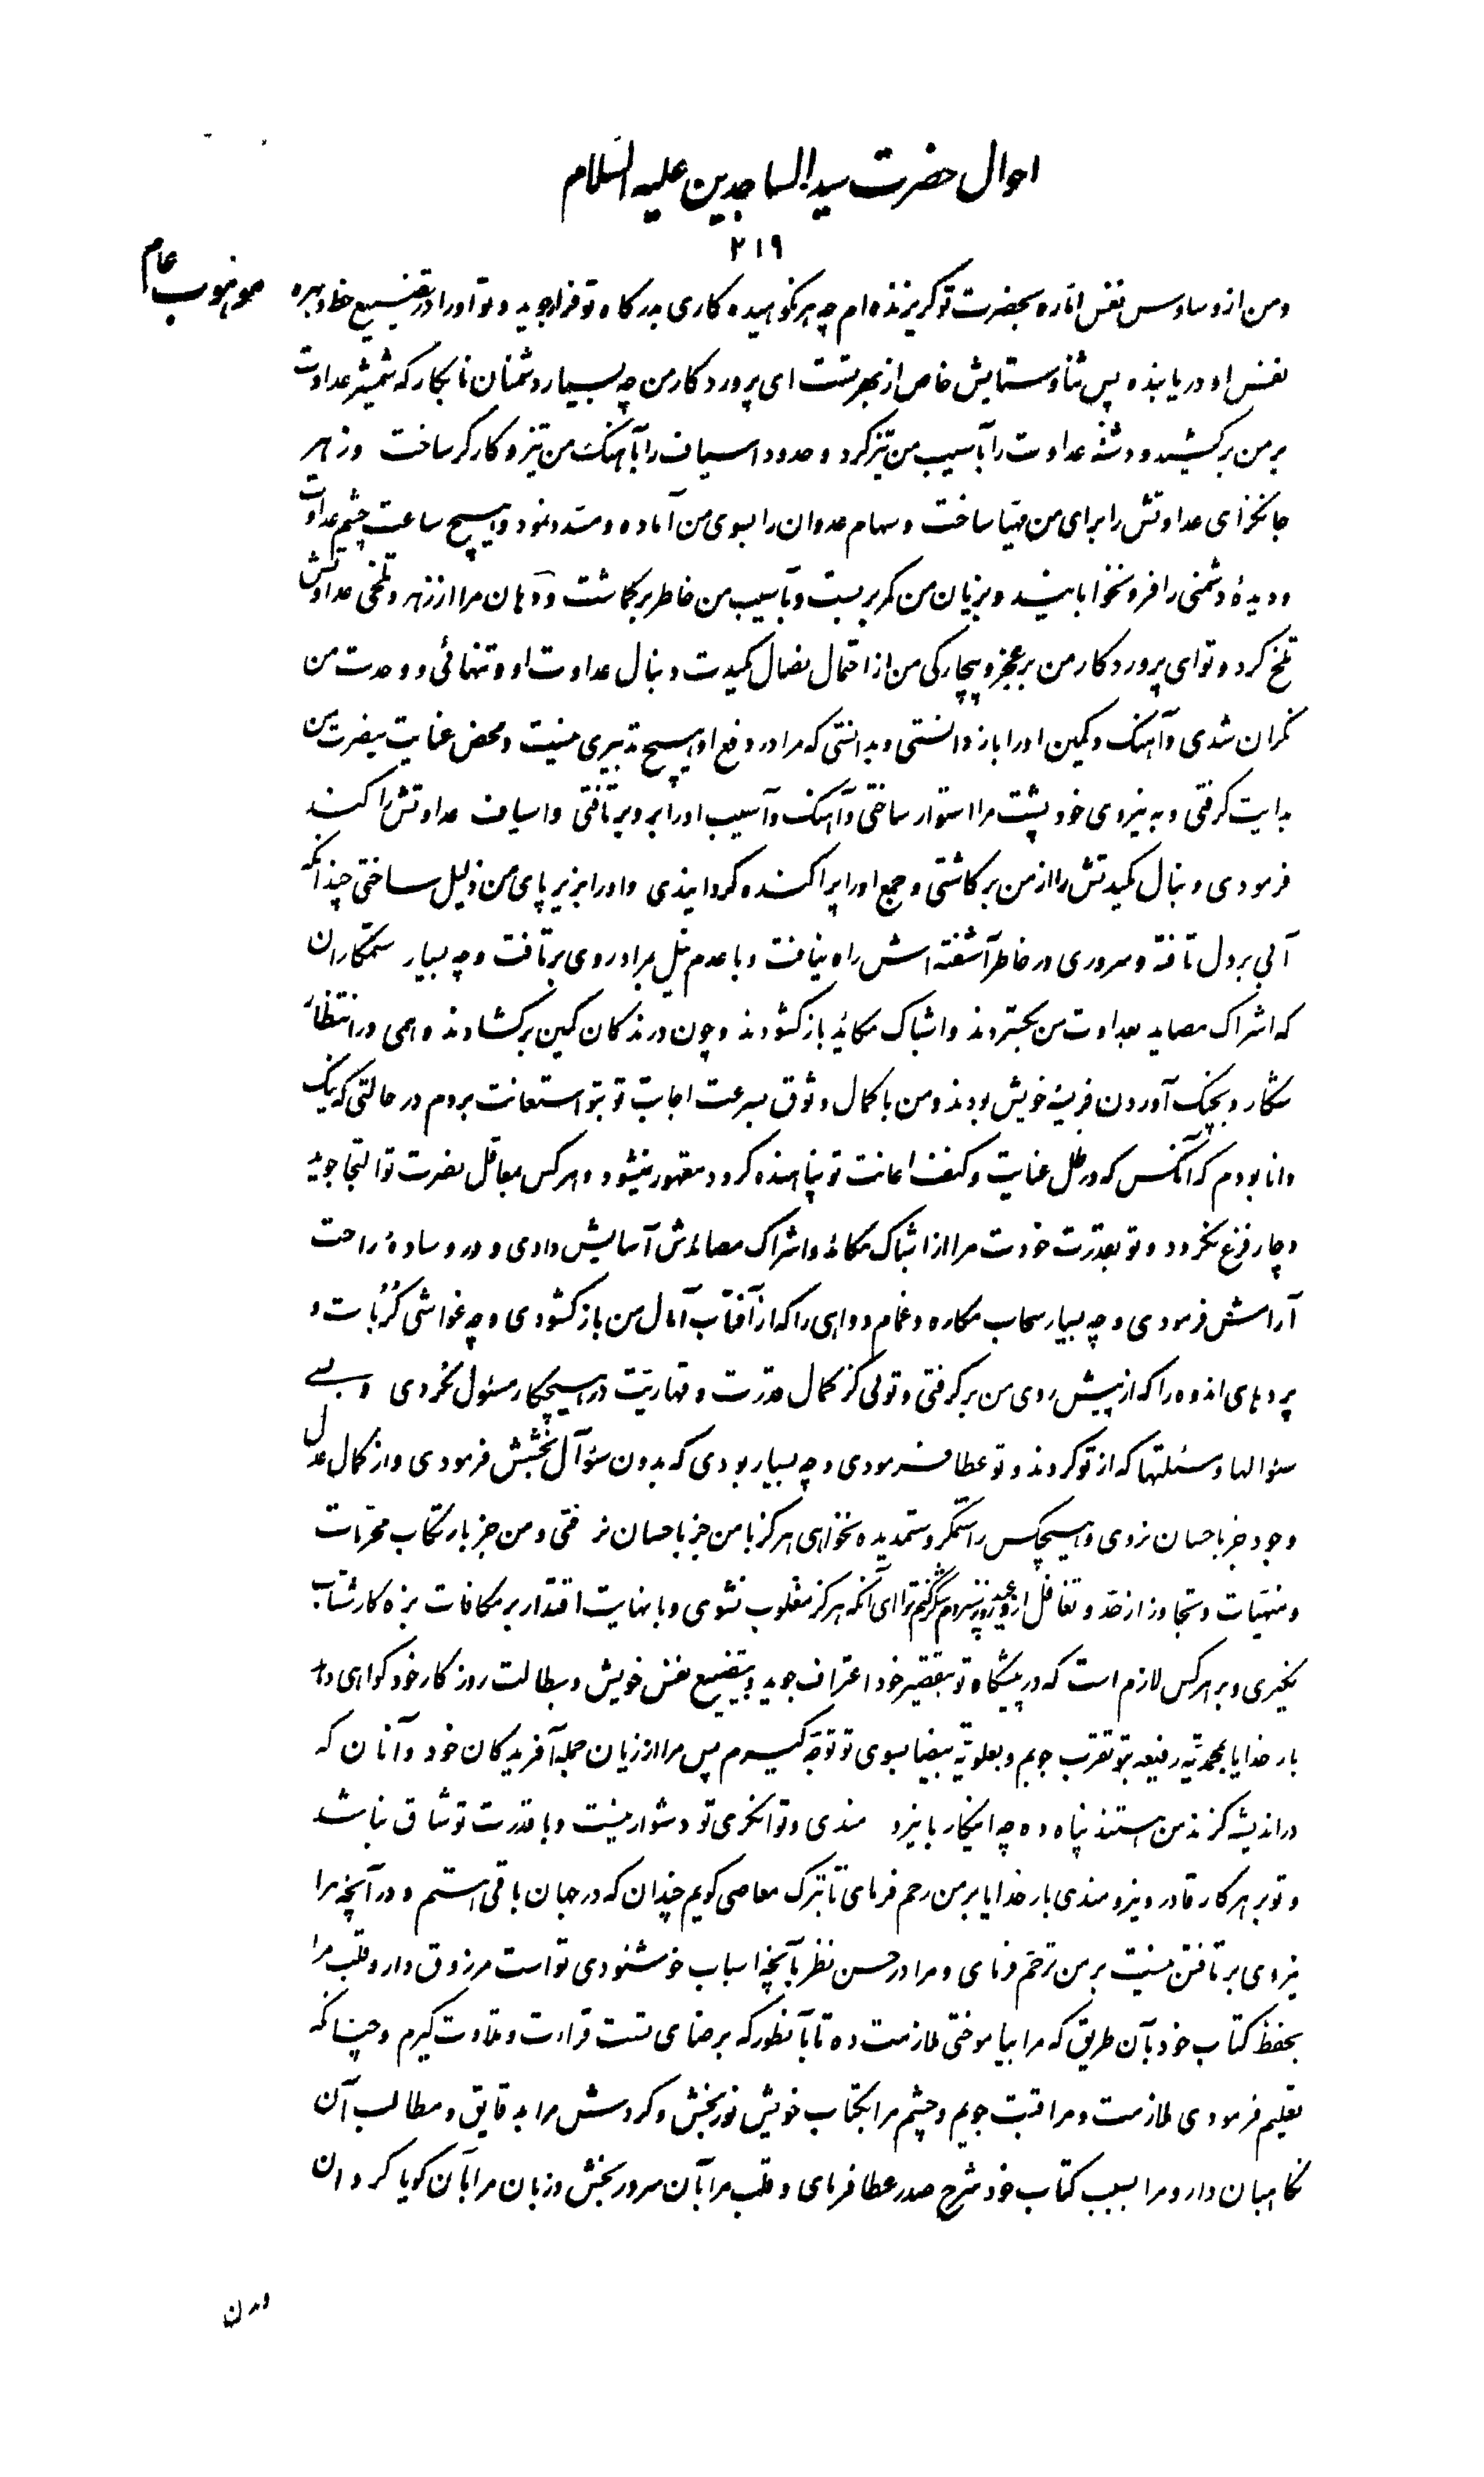 احوال حضرت سید الساجدین علیه السلام
۲۱۹
ومن از وساوس نفس اماره بحضرت تو گریزنده ام چه هر نکوهیده کاری بدرگاه تو فرار جوید و تو او را در تضییع حظ و بهره
نفس او دریابنده پس ثنا و ستایش خاص از بهر تست ای پروردگار من چه بسیار دشمنان نابکار که شمشیر عداوت
بر من برکشید و دشنه عداوت را بآسیب من تیز کرد و حدود اسیاف را بآهنگ من تیز و کارگر ساخت و زهر
جانگزای عداوتش را برای من مهیا ساخت و سهام عدوان را بسوی من آماده و مسدد نمود و هیچ ساعت چشم عداوت
و دیدهٔ دشمنی را فرو نخوابانید و بزیان من کمر بر بست و بآسیب من خاطر برگماشت و دهان مرا از زهر و تلخی عداوتش
تلخ کرد و تو ای پروردگار من بر عجز و بیچارگی من از احتمال نصال کیدت و نبال عداوت او و تنهائی و وحدت من
نگران شدی و آهنگ و کمین او را باز دانستی و بدانستی که مرا در دفع او هیچ تدبیری نیست و محض عنایت بنصرت من
بدایت گرفتی و به نیروی خود پشت مرا استوار ساختی و آهنگ و آسیب او را بر وی برتافتی و اسیاف عداوتش را کند
فرمودی و نبال کیدتش را از من برکاشتی و جمع او را پراکنده گردانیدی و او را بزیر پای من ذلیل ساختی چندانکه
آبی بر دل تافته و سروری در خاطر آشفته اش راه نیافت و با عدم نیل مراد روی برتافت و چه بسیار ستمکاران
که اشراک مصاید بعداوت من بگستردند و اشباک مکاید باز کشودند و چون درندگان کمین برگشادند و همی در انتظار
شکار و بچنگ آوردن فریسهٔ خویش بودند و من با کمال وثوق بسرعت اجابت تو بتو استعانت بردم در حالتی که نیک
دانا بودم که آنکس که در ظل عنایت و کنف اعانت تو پناهنده گردد مقهور نمیشود و هر کس بمعاقل نصرت تو التجا جوید
دچار فزع نگردد و تو بقدرت خودت مرا از اشباک مکائد و اشراک مصائدش آسایش دادی و در وسادهٔ راحت
آرامش فرمودی و چه بسیار سحاب مکاره و غمام دواهی را که از آفتاب آمال من باز کشودی و چه غواشی کُرُبات و
پردهای اندوه را که از پیش روی من برگرفتی و توئی کز کمال قدرت و قهاریت در هیچکار مسئول نگردی و بسے
سئوالها و مسئلتها که از تو کردند و تو عطا فرمودی و چه بسیار بودی که بدون سئوآل بخشش فرمودی و از کمال عدل
وجود جز باحسان نروی و هیچکس را ستمگر و ستمدیده نخواهی هرگز با من جز باحسان نرفتی و من جز بارتکاب محرمات
و منهیات و تجاوز از حد و تغافل از وعید روز نسپردم شکر گنم ترا ای آنکه هرگز مغلوب نشوی و با نهایت اقتدار بر مکافات بزه کار شتاب
نگیری و بر هر کس لازم است که در پیشگاه تو بتقصیر خود اعتراف جوید و بتضییع نفس خویش و بطالت روزگار خود گواهی دهد
بار خدایا بمحمدیه رفیعه بتو تقرب جویم و بعلویه بیضا بسوی تو توجه گیرم پس مرا از زیان جمله آفریدگان خود و آنان که
در اندیشه گزند من هستند پناه ده چه اینکار با نیرومندی و توانگری تو دشوار نیست و با قدرت تو شاق نباشد
و تو بر هر کار قادر و نیرومندی بار خدایا بر من رحم فرمای تا بترک معاصی گویم چندان که در جهان باقی هستم و در آنچه مرا
نیروی بر تافتن نیست بر من ترحم فرمای و مرا در حسن نظر بآنچه اسباب خوشنودی تو است مرزوق دار و قلب مرا
بحفظ کتاب خود بآن طریق که مرا بیاموختی ملازمت ده تا بآنطور که برضای تست قرائت و تلاوت گیرم و چنانکه
تعلیم فرمودی ملازمت و مراقبت جویم و چشم مرا بکتاب خویش نور بخش و گردش مرا بدقایق و مطالب آن
نگاهبان دار و مرا بسبب کتاب خود شرح صدر عطا فرمای و قلب مرا بآن سرور بخش و زبان مرا بآن گویا گردان